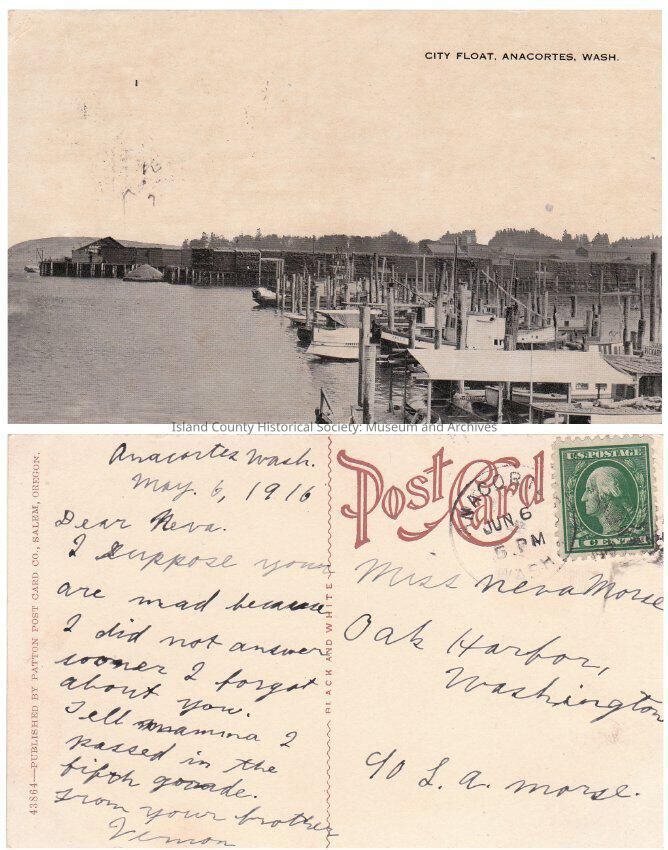 CITY FLOAT, ANACORTES, WASH.
Island County Historical Society: Museum and Archives
43864—PUBLISHED BY PATTON POST CARD CO., SALEM, OREGON.
Anacortes Wash.
May. 6, 1916
Dear Neva.
I suppose your
are mad because
I did not answer
sooner I forgot
about you.
Tell mamma I
passed in the
fifth grade.
From your brother
Vernon
BLACK AND WHITE
Post Card
ANACORT
JUN 6
5 PM
WASH
U.S. POSTAGE
1 CENT 1
Miss Neva Morse
Oak Harbor,
Washington
c/o L. A. Morse.